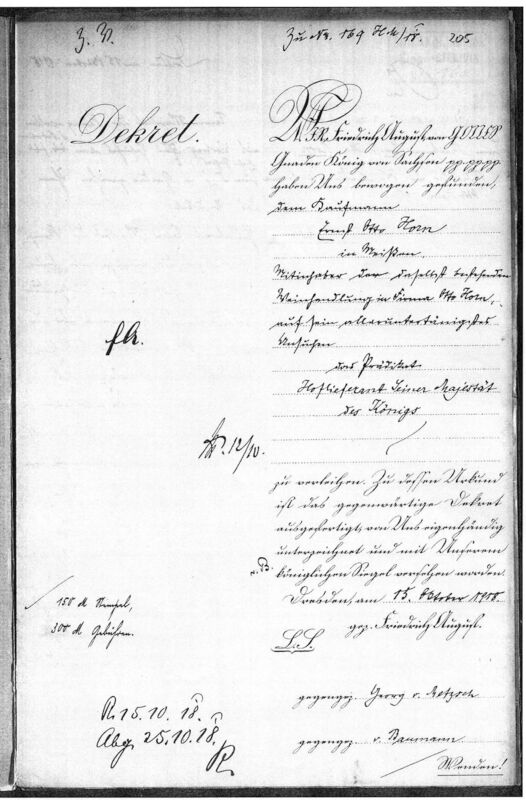 Zu Nr. 169 H M/IV. 205
Dekret.
WIR, Friedrich August von GOTTES
Gnaden König von Sachsen pp. pp. pp.
haben Uns bewogen gefunden,
dem Kaufmann
Ernst Otto Horn
in Meißen,
Mitinhaber der daselbst bestehenden
Weinhandlung in Firma Otto Horn,
auf sein alleruntertänigstes
Ansuchen
das Prädikat
Hoflieferant Seiner Majestät
des Königs
12/10.
zu verleihen. Zu dessen Urkund
ist das gegenwärtige Dekret
ausgefertigt, von Uns eigenhändig
unterzeichnet und mit Unserem
königlichen Siegel versehen worden.
Dresden, am 15. Oktober 1918.
150 M Stempel,
300 M Gebühren.
gez. Friedrich August.
L.S.
gegengez. Georg v. Metzsch
R. 15. 10. 18.
Abg. 25. 10. 18.
gegengez. v. Baumann.
Wenden!